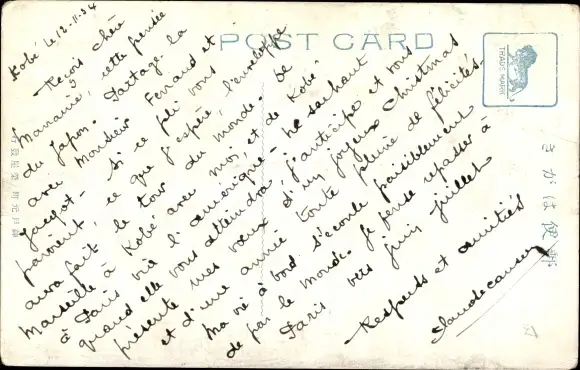 POST CARD
TRADE MARK
Kobé le 12-11-34
Reçois chère
Mamaine, cette pensée
du Japon. Partage la
avec Monsieur Fernand et
Jacquot. Si ce pli vous
parvient, ce que j'espère, l'enveloppe
aura fait le tour du monde. De
Marseille à Kobé avec moi, et de Kobé
à Paris via l'Amérique. Ne sachant
quand elle vous attendra, j'anticipe et vous
présente mes vœux d'un joyeux Christmas
et d'une année toute pleine de félicités.
Ma vie à bord s'écoule paisiblement
de par le monde. Je pense repasser à
Paris vers juin juillet
Respects et amitiés
きがは便郵